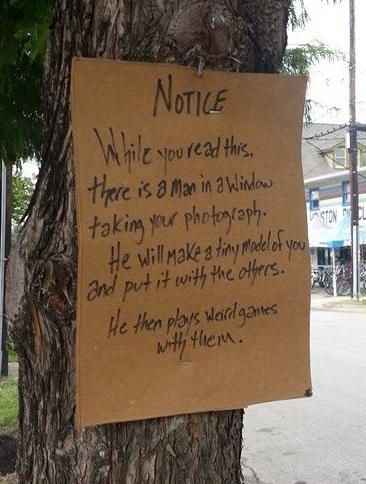 NOTICE
While you read this.
there is a man in a Window
taking your photograph.
He will make a tiny model of you
and put it with the others.
He then plays weird games
with them.